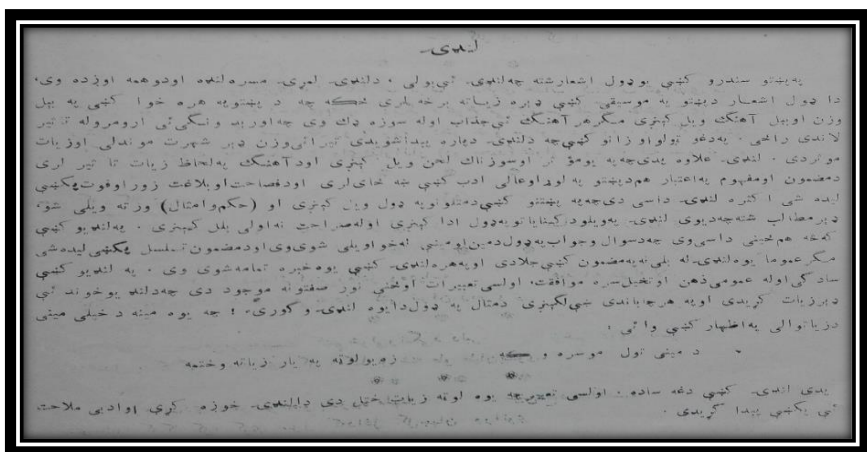 لنډۍ
په پښتو سندرو کښې یو ډول اشعار شته چه لنډۍ ئې بولی، د لنډۍ لمړۍ مسره لنډه اودوهمه اوږده وی.
دا ډول اشعار د پښتو په موسیقی کښې ډېره زیاته برخه لری ځکه چه د پښتو په هره خوا کښې په بېل
وزن اوبېل آهنګ ویل کېږی مګر هر آهنګ ئې جذاب اوله سوزه ډک وی چه اورېدونکی ئې ارومرو له تاثیر
لاندی راځی. په دغو ټولو اوزانو کښې چه د لنډۍ دپاره پیدا شویدی تیرائی وزن ډېر شهرت موندلی اوزیات
مؤثر دی. لنډۍ علاوه پدی چه په یو مؤثر اوسوزناک لحن ویل کېږی اود آهنګ په لحاظ زیات تاثیر لری
د مضمون اومفهوم په اعتبار هم د پښتو په لوړ اوعالی ادب کښې ښه ځای لری اود فصاحت اوبلاغت زور اوقوت پکښې
لیده شی اکثره لنډۍ داسی دی چه په پښتو کښې د متلونو په ډول ویل کېږی او (حکم وامثال) ورته ویلی شو
ډېر مطالب شته چه د یوی لنډۍ په ویلو د کنایاتو په ډول ادا کېږی اوله صراحت نه اولی بلل کېږی. په لنډیو کښې
ځینی داسی وی چه د سوال وجواب په ډول د مین اومینی له خوا ویلی شوی وی اود مضمون تسلسل پکښې لیده شی
مګر عموماً یوه لنډۍ له بلی نه په مضمون کښې جلا دی اوپه هره لنډۍ کښې یوه خبره تمامه شوی وی. په لنډیو کښې
سادګی اوله عمومی ذهن اوتخیل سره موافقت، اولسی تعبیرات اوځنی نور صفتونه موجود دی چه د لنډۍ یو خوند ئې
ډېر زیات کړیدی اوپه هر چا باندی ښې لګېږی د مثال په ډول دا یوه لنډۍ وګورئ: چه یوه مینه د خپلی مینی
د زیاتوالی په اظهار کښې وائی:
د مینی تول موسره وکه زه یو لوټه په یار زیاته وختمه
پدی لنډۍ کښې دغه ساده، اولسی تعبیر چه یوه لوټه زیات ختل دی دا لنډۍ خوږه کړی اوادبی ملاحت
ئې پکښې پیدا کړیدی.